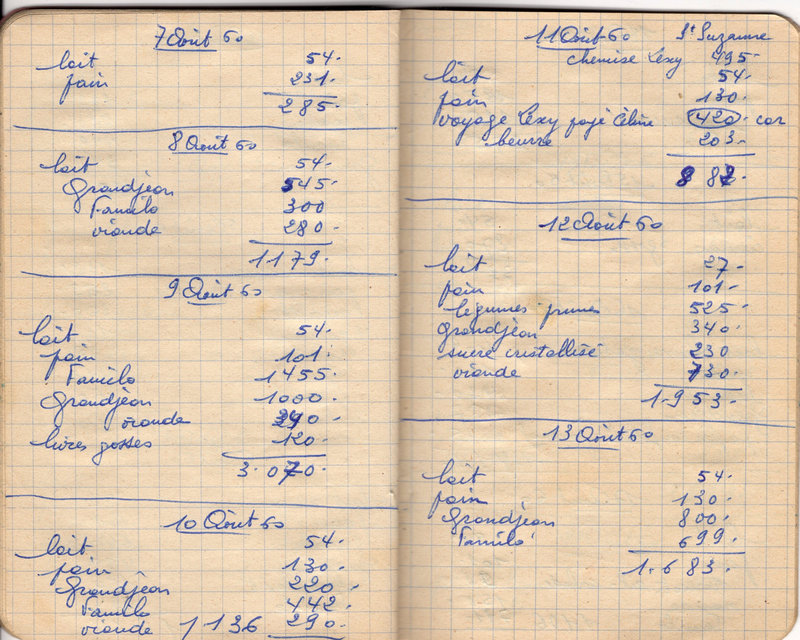 7 Août 60
lait 54.
pain 231.
285.
8 Août 60
lait 54.
Grandjean 545.
Familo 300
viande 280.
1179.
9 Août 60
lait 54.
pain 101.
Familo 1455.
Grandjean 1000.
viande 340.
livres gosses 120.
3.070.
10 Août 60
lait 54.
pain 130.
Grandjean 220.
Familo 442.
viande 1136 290.
11 Août 60 St Suzanne
chemise Lexy 495.
lait 54.
pain 130.
voyage Lexy payé Céline 420. car
beurre 203.
882.
12 Août 60
lait 27.
pain 101.
légumes prunes 525.
Grandjean 340.
sucre cristallisé 230
viande 730.
1.953.
13 Août 60
lait 54.
pain 130.
Grandjean 800.
Familo 699.
1.683.